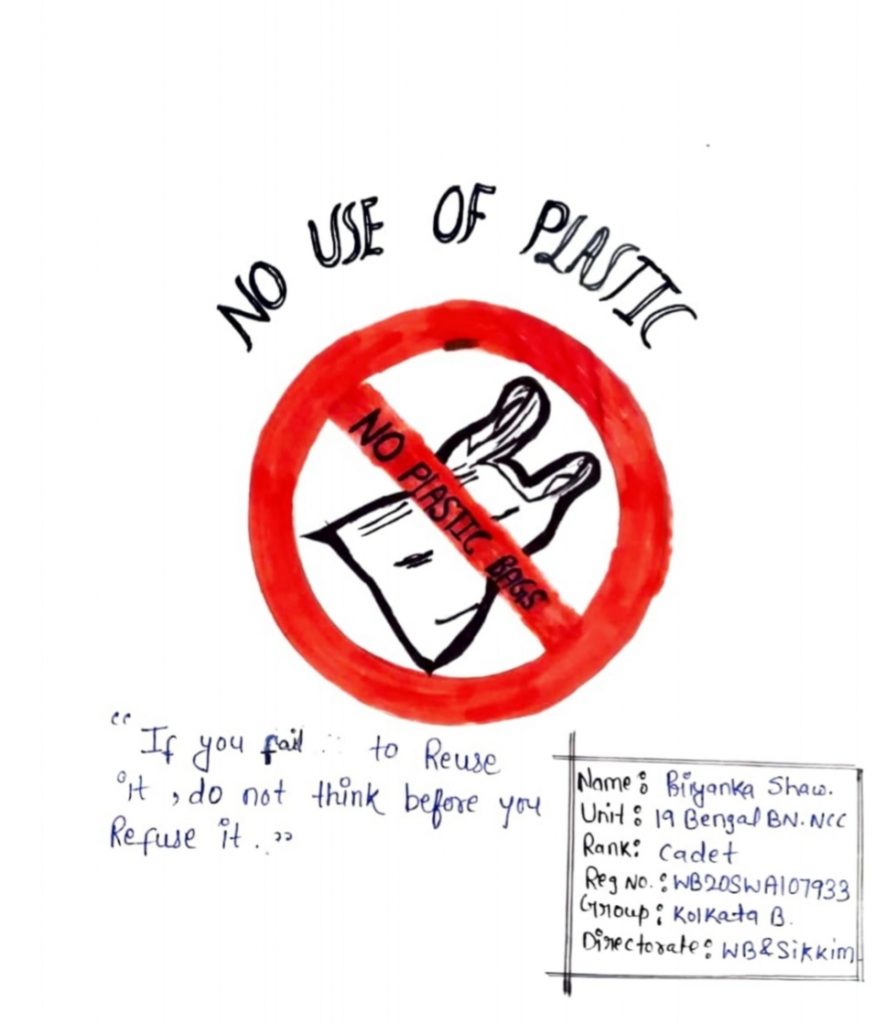 NO USE OF PLASTIC
NO PLASTIC BAGS
“If you fail to Reuse
it, do not think before you
Refuse it.”
Name: Priyanka Shaw.
Unit: 19 Bengal BN. NCC
Rank: Cadet
Reg No.: WB20SWA107933
Group: Kolkata B.
Directorate: WB&Sikkim